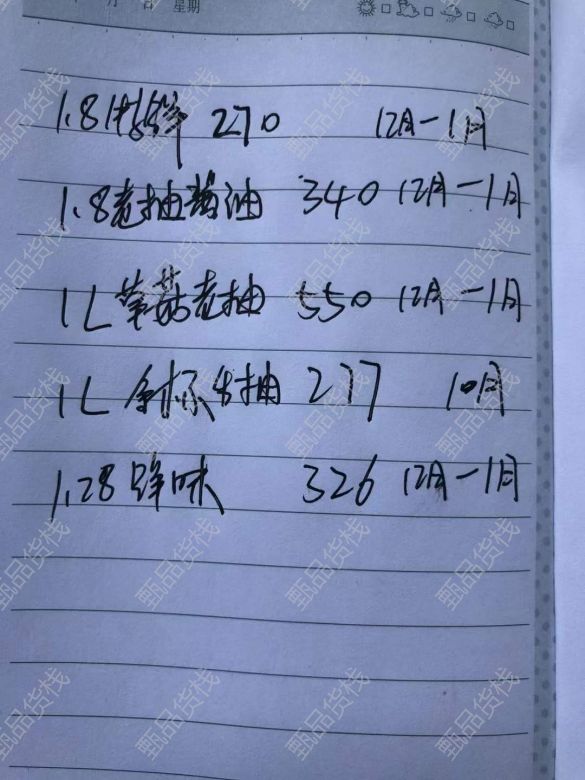 月 日 星期
1.8特鲜 270 12月-1月
1.8老抽酱油 340 12月-1月
1L草菇老抽 550 12月-1月
1L金标生抽 277 10月
1.28鲜味 326 12月-1月
甄品货栈